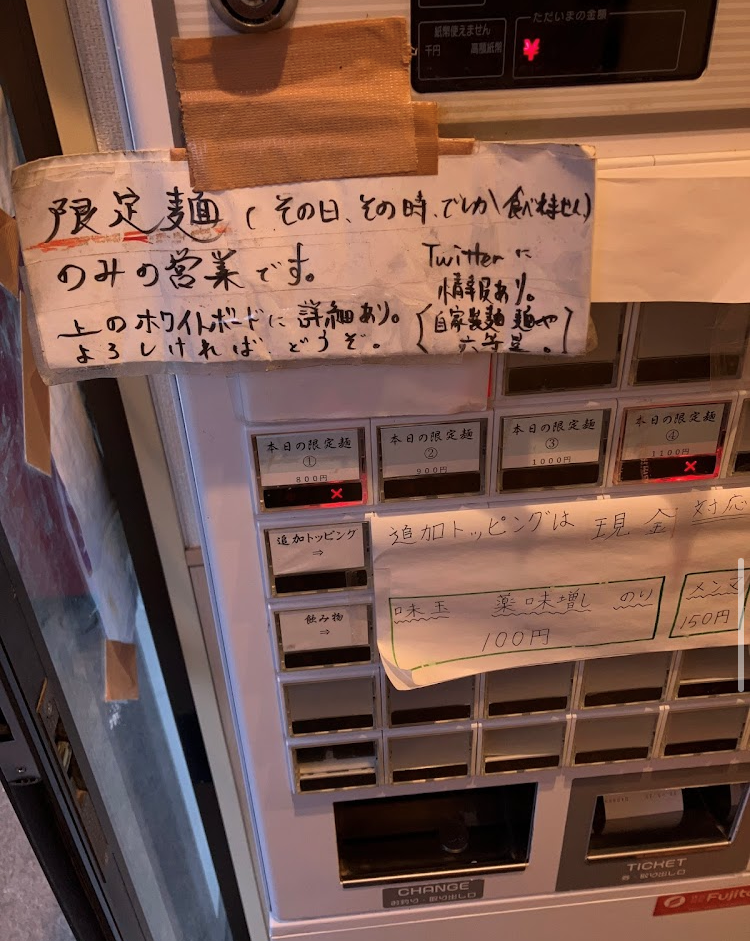 紙幣使えません
千円 高額紙幣
ただいまの金額
¥
限定麺 (その日、その時、でしか食べれません)
のみの営業です。
上のホワイトボードに詳細あり。
よろしければ、どうぞ。
Twitterに
情報あり。
(自家製麺 麺や
六等星。)
本日の限定麺
①
800円
×
本日の限定麺
②
900円
本日の限定麺
③
1000円
本日の限定麺
④
1100円
×
追加トッピング
⇒
追加トッピングは 現金 対応
味玉 薬味増し のり
100円
メンマ
150円
飲み物
⇒
CHANGE
お釣り・取り出し口
TICKET
券・取り出し口
Fujita